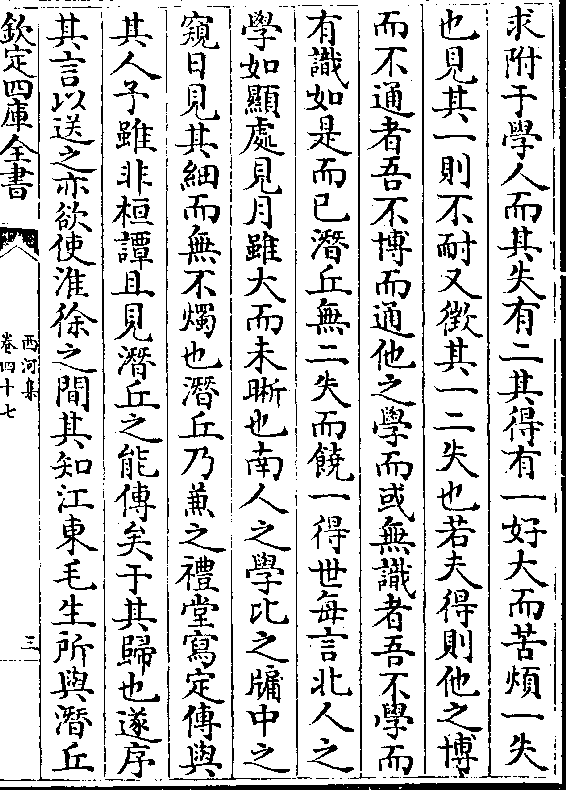 求附于學人而其失有二其得有一好大而苦煩一失
也見其一則不耐又徴其一二失也若夫得則他之博
而不通者吾不博而通他之學而或無識者吾不學而
有識如是而已潛丘無二失而饒一得世每言北人之
學如顯處見月雖大而未晰也南人之學比之牖中之
窺日見其細而無不燭也潛丘乃兼之禮堂寫定傳與
其人予雖非桓譚且見潛丘之能傳矣于其歸也遂序
其言以送之亦欲使淮徐之間其知江東毛生所與潛丘
欽定四庫全書
西河集
卷四十七
三